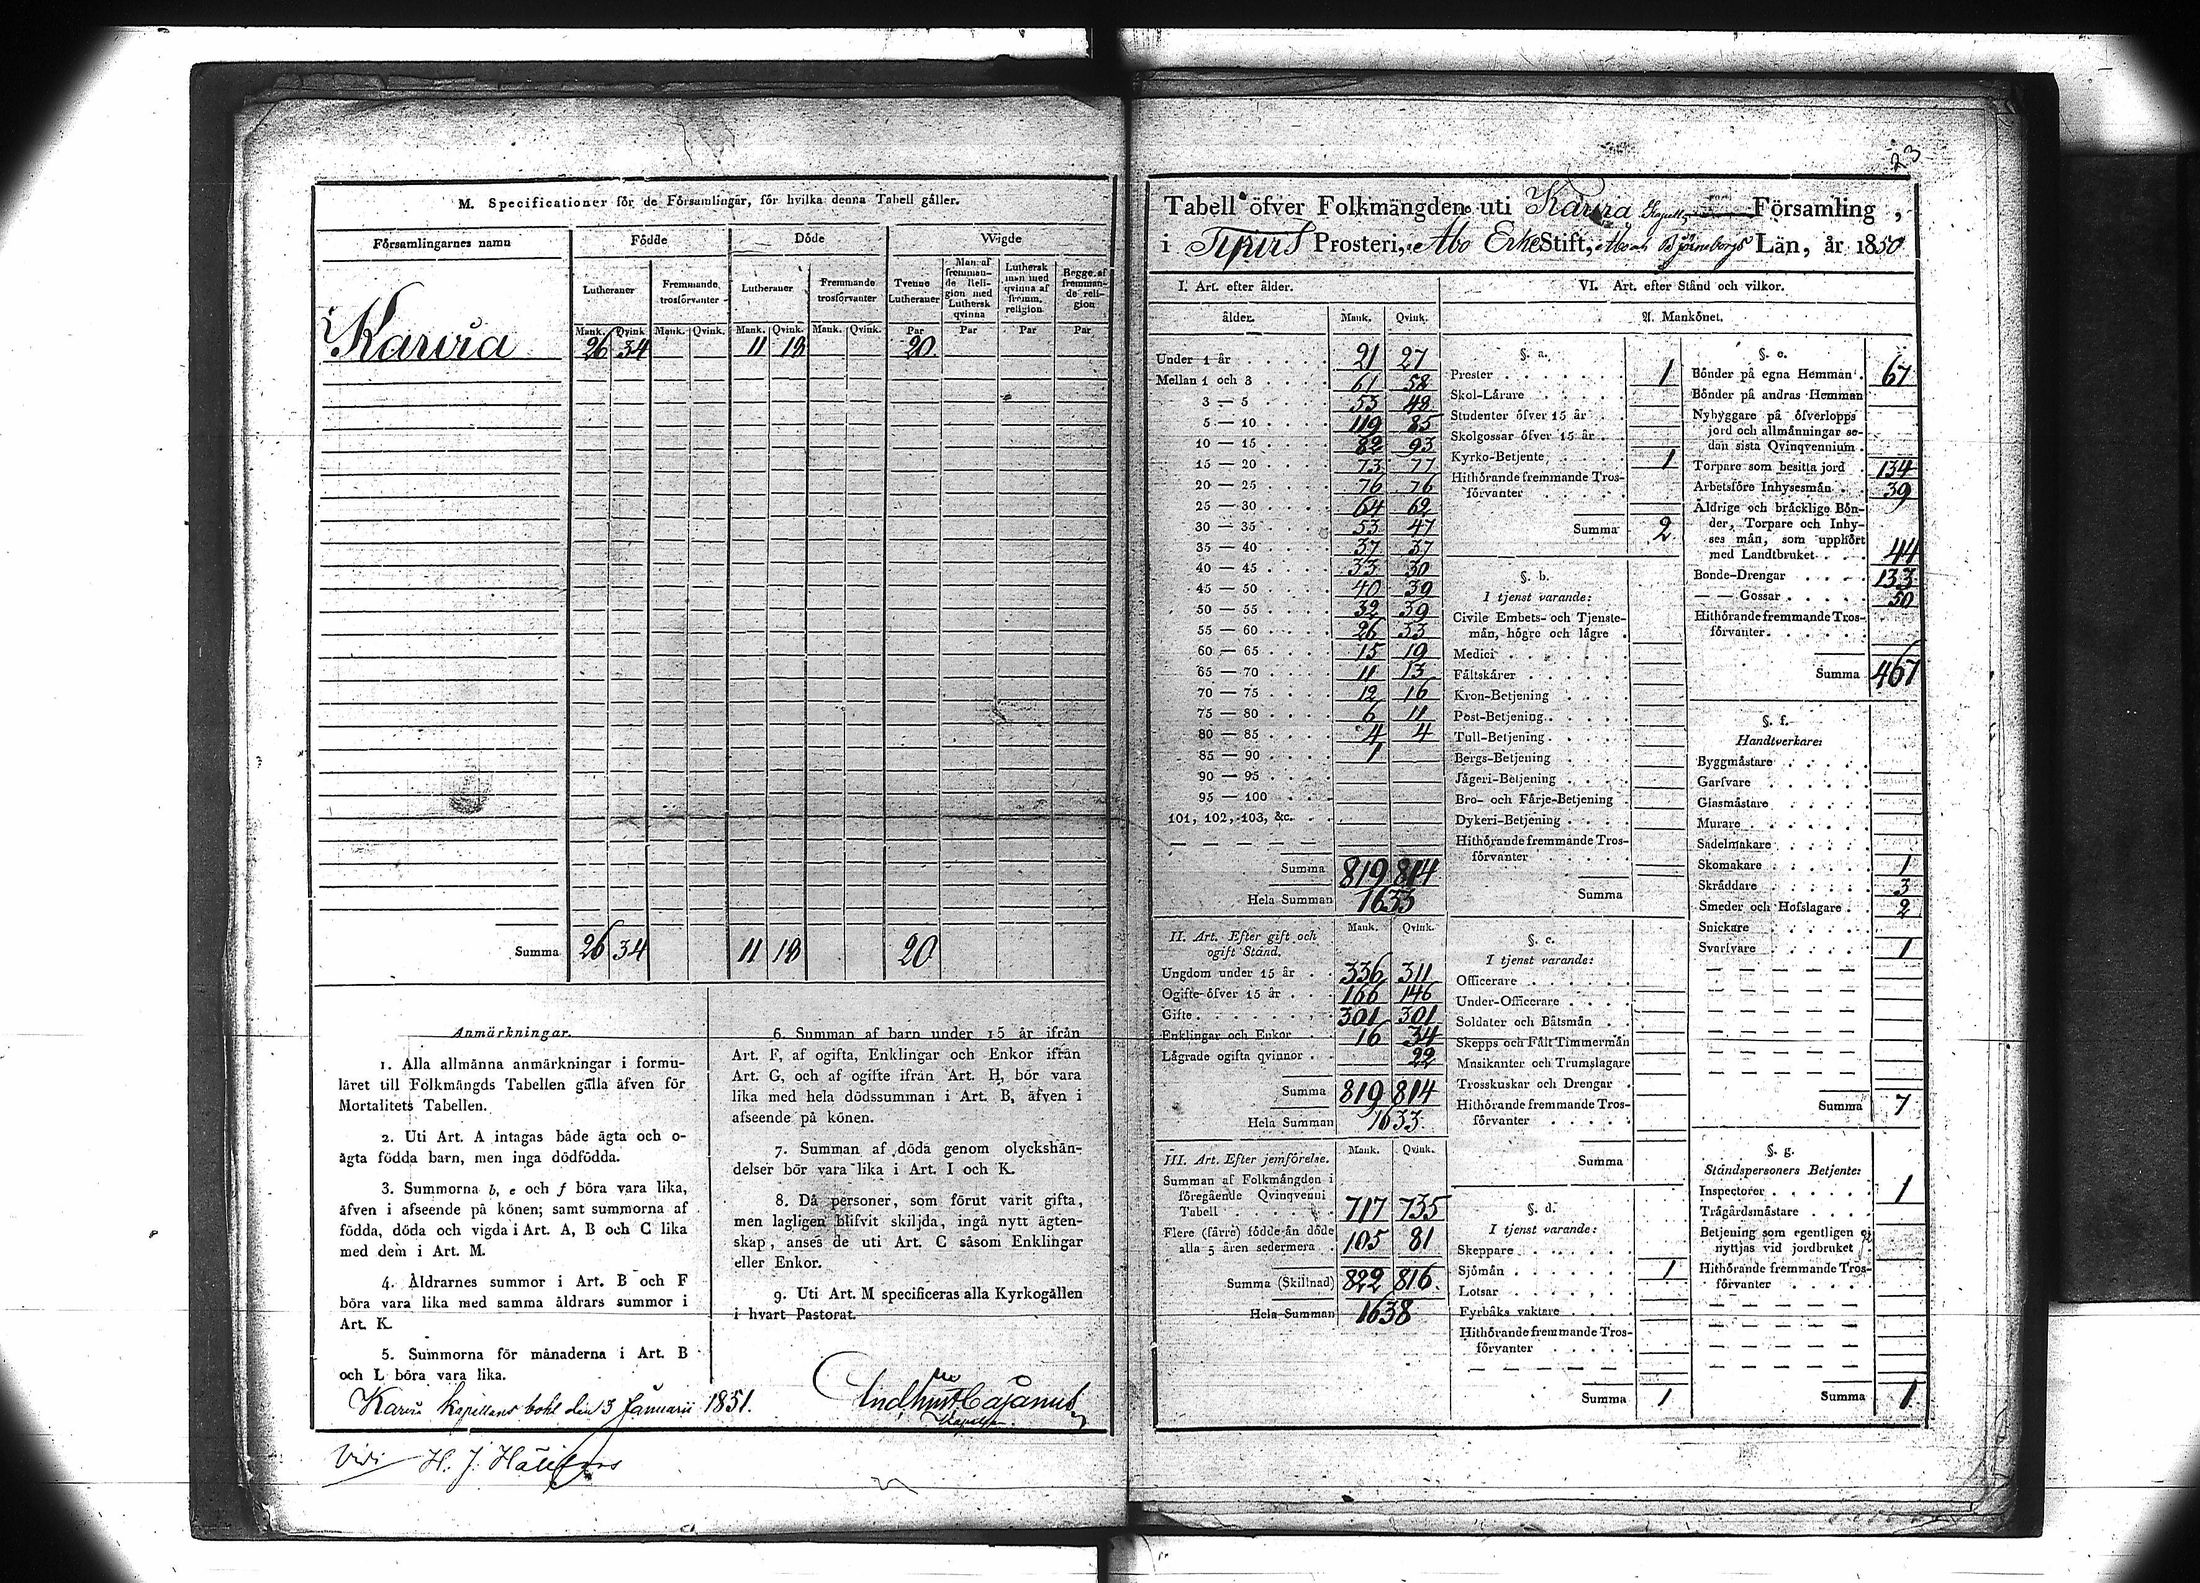 M. Specificationer för de Församlingar, för hvilka denna Tabell gäller.
Församlingarnes namn Födde Döde Wigde
Lutheraner Fremmande trosförvanter Lutheraner Fremmande trosförvanter Tvenne Lutheraner Man af fremmande Religion med Luthersk qvinna Luthersk man med qvinna af fremm. religion Begge af fremmande religion
Mank. Qvink. Mank. Qvink. Mank. Qvink. Mank. Qvink. Par Par Par Par
Karvia 26 34 11 18 20
Summa 26 34 11 18 20
Anmärkningar.
1. Alla allmänna anmärkningar i formu-
läret till Folkmängds Tabellen gälla äfven för
Mortalitets Tabellen.
2. Uti Art. A intagas både ägta och o-
ägta födda barn, men inga dödfödda.
3. Summorna b, e och f böra vara lika,
äfven i afseende på könen; samt summorna af
födda, döda och vigda i Art. A, B och C lika
med dem i Art. M.
4. Åldrarnes summor i Art. B och F
böra vara lika med samma åldrars summor i
Art. K.
5. Summorna för månaderna i Art. B
och L böra vara lika.
6. Summan af barn under 15 år ifrån
Art. F, af ogifta, Enklingar och Enkor ifrån
Art. G, och af ogifte ifrån Art. H, bör vara
lika med hela dödssumman i Art. B, äfven i
afseende på könen.
7. Summan af döda genom olyckshän-
delser bör vara lika i Art. I och K.
8. Då personer, som förut varit gifta,
men lagligen blifvit skiljda, ingå nytt ägten-
skap, anses de uti Art. C såsom Enklingar
eller Enkor.
9. Uti Art. M specificeras alla Kyrkogällen
i hvart Pastorat.
Karvia Kapellans bohl den 3 Januarii 1851.
Cajanus
Vidi H. J.
23
Tabell öfver Folkmängden uti Karvia Kapell Församling,
i Prosteri, Åbo ErkeStift, Åbo och Björneborgs Län, år 1850
I. Art. efter ålder.
ålder. Mank. Qvink.
Under 1 år 21 27
Mellan 1 och 3 61 58
3 — 5 53 48
5 — 10 119 85
10 — 15 82 93
15 — 20 73 77
20 — 25 76 76
25 — 30 64 62
30 — 35 53 47
35 — 40 37 37
40 — 45 33 30
45 — 50 40 39
50 — 55 32 39
55 — 60 26 33
60 — 65 15 19
65 — 70 11 13
70 — 75 12 16
75 — 80 6 11
80 — 85 4 4
85 — 90 1
90 — 95
95 — 100
101, 102, 103, &c.
Summa 819 814
Hela Summan 1633
II. Art. Efter gift och ogift Stånd. Mank. Qvink.
Ungdom under 15 år 336 311
Ogifte öfver 15 år 166 146
Gifte 301 301
Enklingar och Enkor 16 34
Lägrade ogifta qvinnor 22
Summa 819 814
Hela Summan 1633
III. Art. Efter jemförelse. Mank. Qvink.
Summan af Folkmängden i
föregående Qvinqvenni
Tabell 717 735
Flere (färre) födde än döde
alla 5 åren sedermera 105 81
Summa (Skillnad) 822 816
Hela Summan 1638
VI. Art. efter Stånd och vilkor.
A. Mankönet.
§. a.
Prester 1
Skol-Lärare
Studenter öfver 15 år
Skolgossar öfver 15 år
Kyrko-Betjente 1
Hithörande fremmande Tros-
förvanter
Summa 2
§. b.
I tjenst varande:
Civile Embets- och Tjenste-
män, högre och lägre
Medici
Fältskärer
Kron-Betjening
Post-Betjening
Tull-Betjening
Bergs-Betjening
Jägeri-Betjening
Bro- och Färje-Betjening
Dykeri-Betjening
Hithörande fremmande Tros-
förvanter
Summa
§. c.
I tjenst varande:
Officerare
Under-Officerare
Soldater och Båtsmän
Skepps och Fält Timmermän
Musikanter och Trumslagare
Trosskuskar och Drengar
Hithörande fremmande Tros-
förvanter
Summa
§. d.
I tjenst varande:
Skeppare
Sjömän 1
Lotsar
Fyrbåks vaktare
Hithörande fremmande Tros-
förvanter
Summa 1
§. e.
Bönder på egna Hemman 67
Bönder på andras Hemman
Nybyggare på öfverlopps
jord och allmänningar se-
dan sista Qvinqvennium
Torpare som besitta jord 134
Arbetsföre Inhysesmän 39
Åldrige och bräcklige Bön-
der, Torpare och Inhy-
ses män, som upphört
med Landtbruket 44
Bonde-Drengar 133
— — Gossar 50
Hithörande fremmande Tros-
förvanter
Summa 467
§. f.
Handtverkare:
Byggmästare
Garfvare
Glasmästare
Murare
Sadelmakare
Skomakare 1
Skräddare 3
Smeder och Hofslagare 2
Snickare
Svarfvare 1
Summa 7
§. g.
Ståndspersoners Betjente:
Inspectorer 1
Trägårdsmästare
Betjening som egentligen ej
nyttjas vid jordbruket
Hithörande fremmande Tros-
förvanter
Summa 1